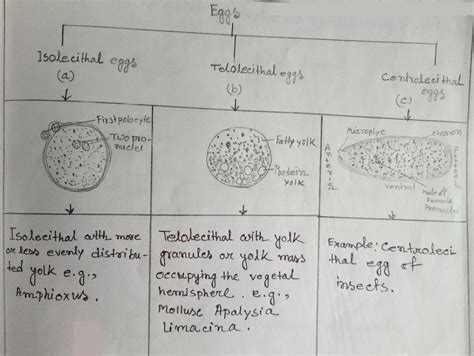 Eggs
Isolecithal eggs
(a)
Telolecithal eggs
(b)
Centrolecithal
eggs
(c)
First polocyte
Two pro-
nuclei
Fatty yolk
Protein
yolk
Micropyle
chorion
ventral
Male &
Female
Pronucleus
Isolecithal with more
or less evenly distribu-
ted yolk e.g.,
Amphioxus.
Telolecithal with yolk
granules or yolk mass
occupying the vegetal
hemisphere. E.g.,
Mollusc Apalysia
Limacina.
Example: Centroleci
thal egg of
insects.